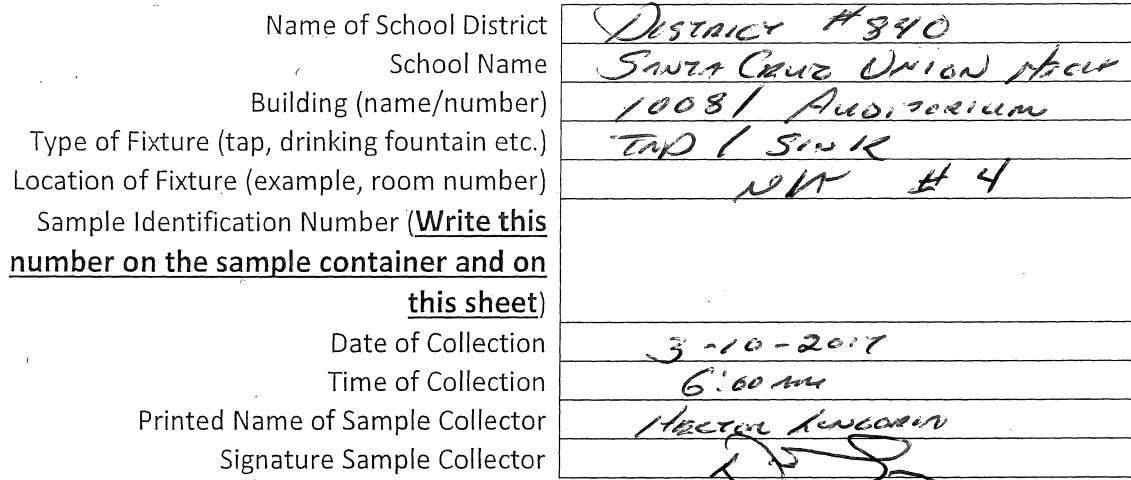 Name of School District DISTRICT #840
School Name SANTA CRUZ UNION HIGH
Building (name/number) 10081 AUDITORIUM
Type of Fixture (tap, drinking fountain etc.) TAP / SINK
Location of Fixture (example, room number) N/A #4
Sample Identification Number (Write this
number on the sample container and on
this sheet)
Date of Collection 3-10-2017
Time of Collection 6:00 AM
Printed Name of Sample Collector HECTOR
Signature Sample Collector